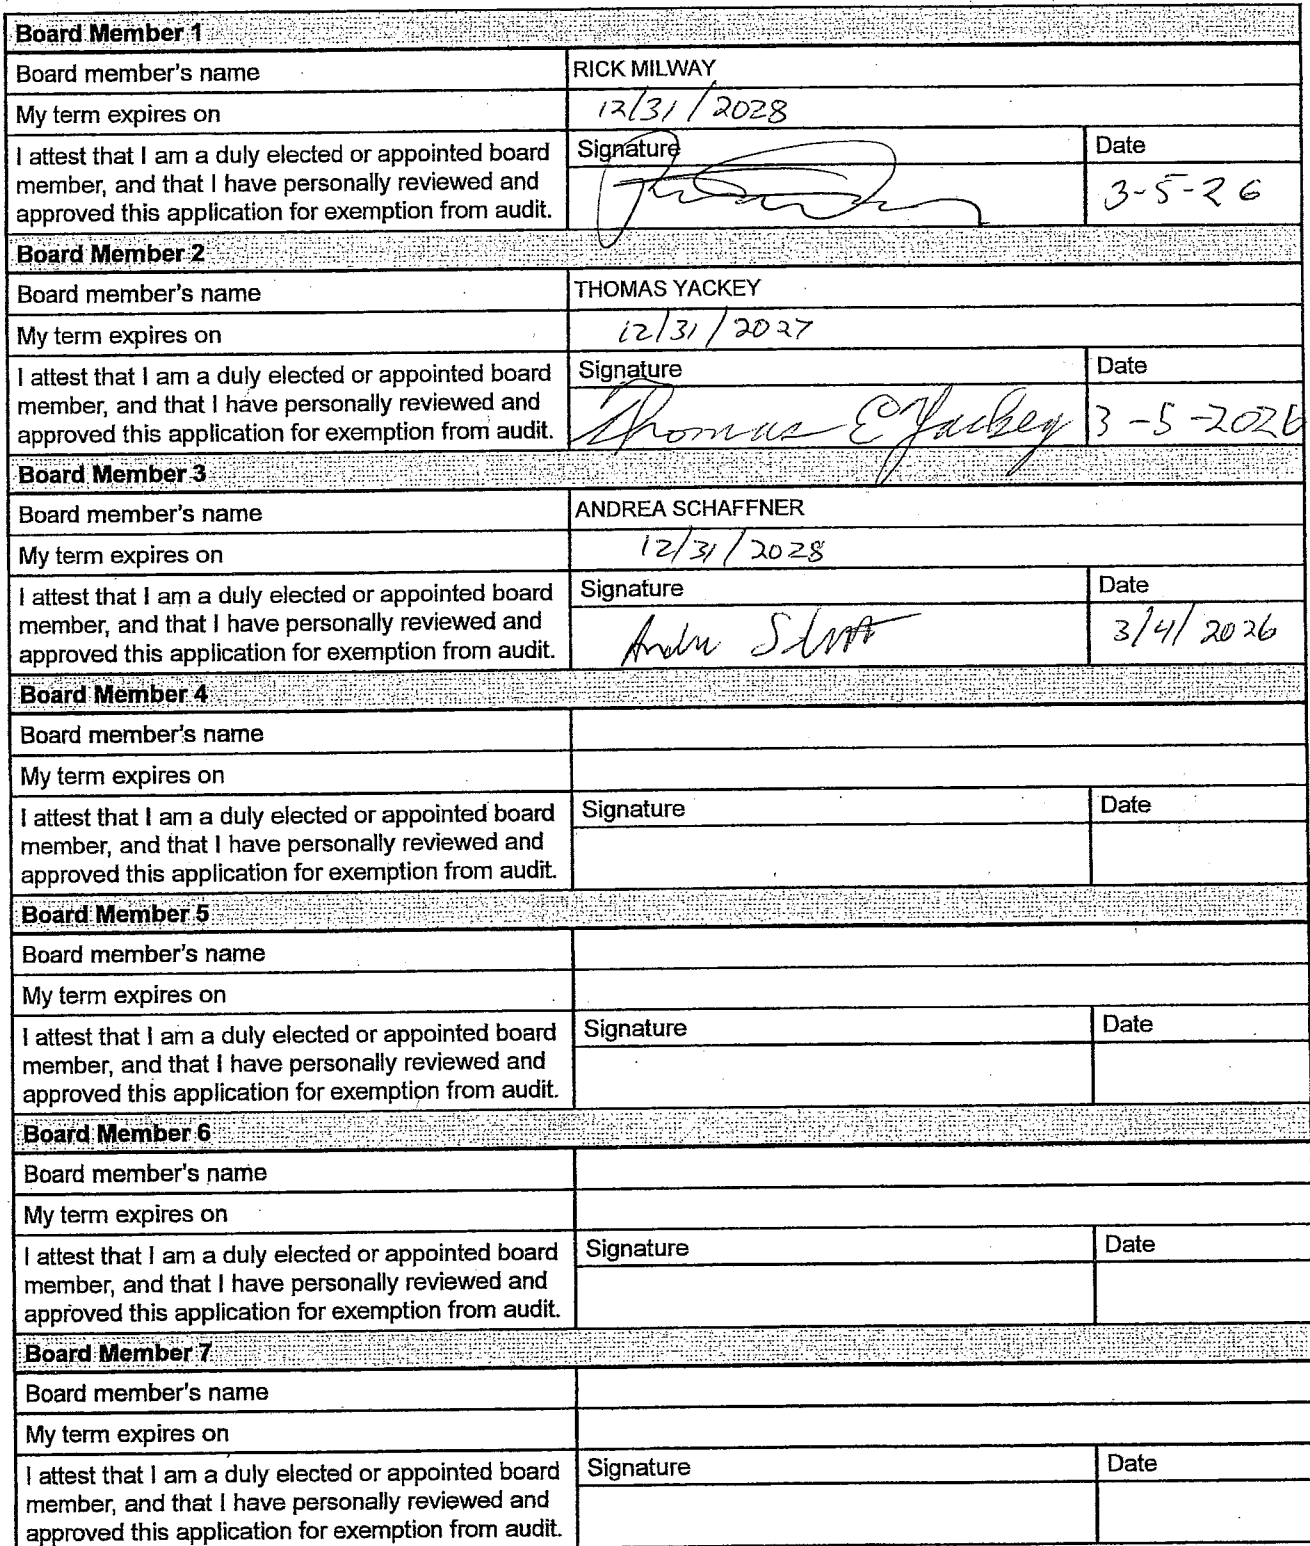 Board Member 1
Board member's name RICK MILWAY
My term expires on 12/31/2028
I attest that I am a duly elected or appointed board
member, and that I have personally reviewed and
approved this application for exemption from audit.
Signature Date
3-5-26
Board Member 2
Board member's name THOMAS YACKEY
My term expires on 12/31/2027
I attest that I am a duly elected or appointed board
member, and that I have personally reviewed and
approved this application for exemption from audit.
Signature Date
Thomas E Yackey 3-5-2026
Board Member 3
Board member's name ANDREA SCHAFFNER
My term expires on 12/31/2028
I attest that I am a duly elected or appointed board
member, and that I have personally reviewed and
approved this application for exemption from audit.
Signature Date
3/4/2026
Board Member 4
Board member's name
My term expires on
I attest that I am a duly elected or appointed board
member, and that I have personally reviewed and
approved this application for exemption from audit.
Signature Date
Board Member 5
Board member's name
My term expires on
I attest that I am a duly elected or appointed board
member, and that I have personally reviewed and
approved this application for exemption from audit.
Signature Date
Board Member 6
Board member's name
My term expires on
I attest that I am a duly elected or appointed board
member, and that I have personally reviewed and
approved this application for exemption from audit.
Signature Date
Board Member 7
Board member's name
My term expires on
I attest that I am a duly elected or appointed board
member, and that I have personally reviewed and
approved this application for exemption from audit.
Signature Date